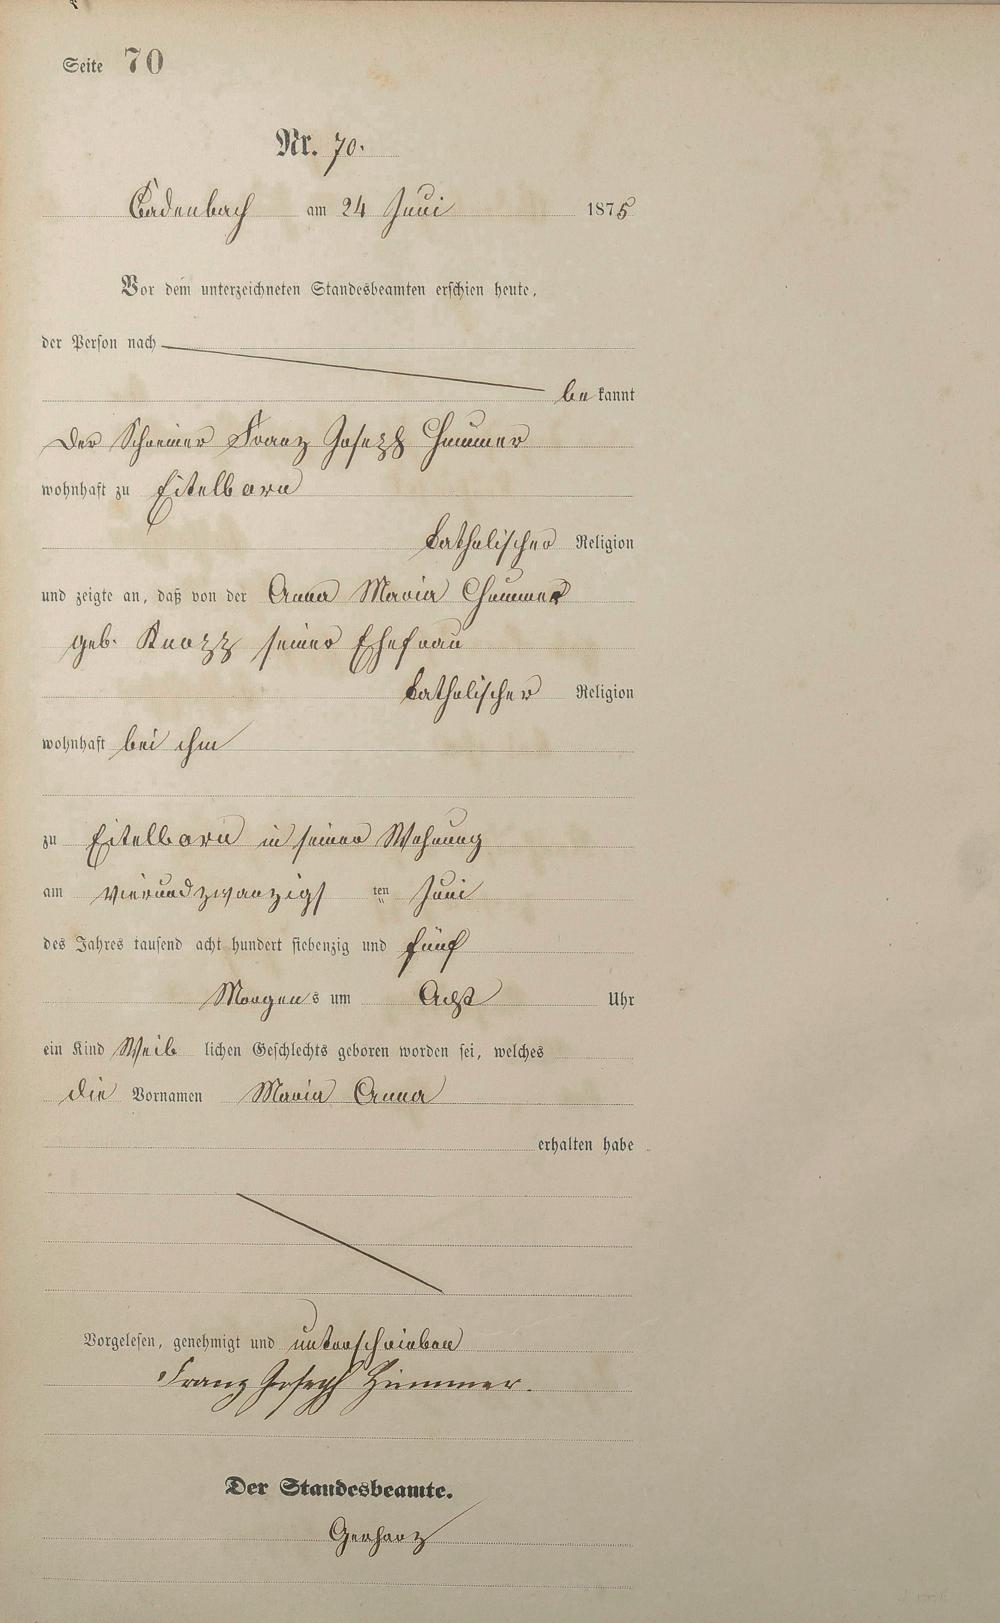 Seite 70
Nr. 70.
Cadenbach am 24 Juni 1875
Vor dem unterzeichneten Standesbeamten erschien heute,
der Person nach
be kannt
der Schreiner Franz Joseph
wohnhaft zu Eitelborn
katholischer Religion
und zeigte an, daß von der Anna Maria
geb. Knopp seiner Ehefrau
katholischer Religion
wohnhaft bei ihm
zu Eitelborn in seiner Wohnung
am vierundzwanzigs ten Juni
des Jahres tausend acht hundert siebenzig und fünf
Morgens um Acht Uhr
ein Kind Weib lichen Geschlechts geboren worden sei, welches
die Vornamen Maria Anna
erhalten habe
Vorgelesen, genehmigt und unterschrieben
Franz Joseph Himmer.
Der Standesbeamte.
Gerharz